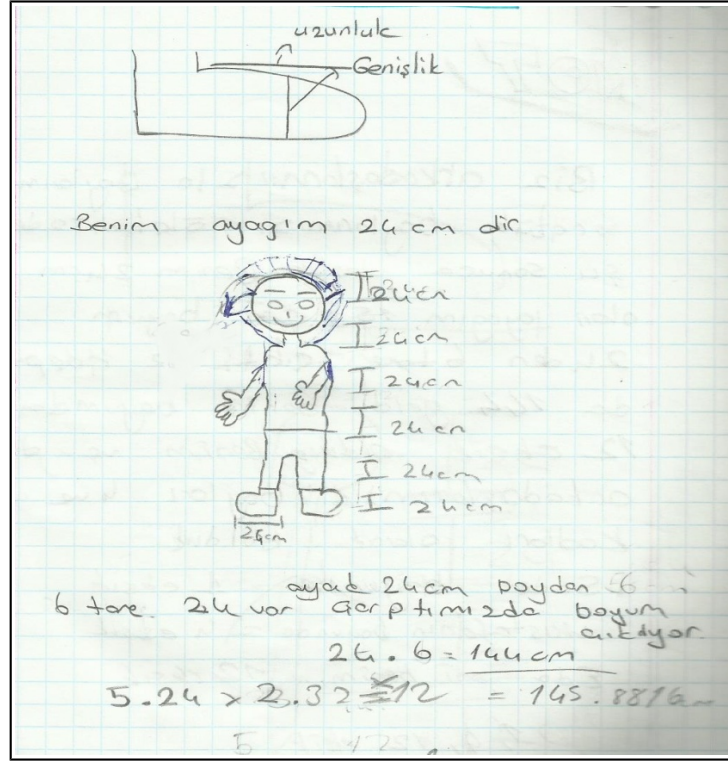 uzunluk
Genişlik
Benim ayagım 24 cm dir
24cm
24cm
24cm
24cm
24cm
24cm
24cm
ayak 24cm boydan
6 tane 24 var çarptımızda boyum
çıkıyor.
24 . 6 = 144 cm
5.24 x 2.32 12 = 145.8816